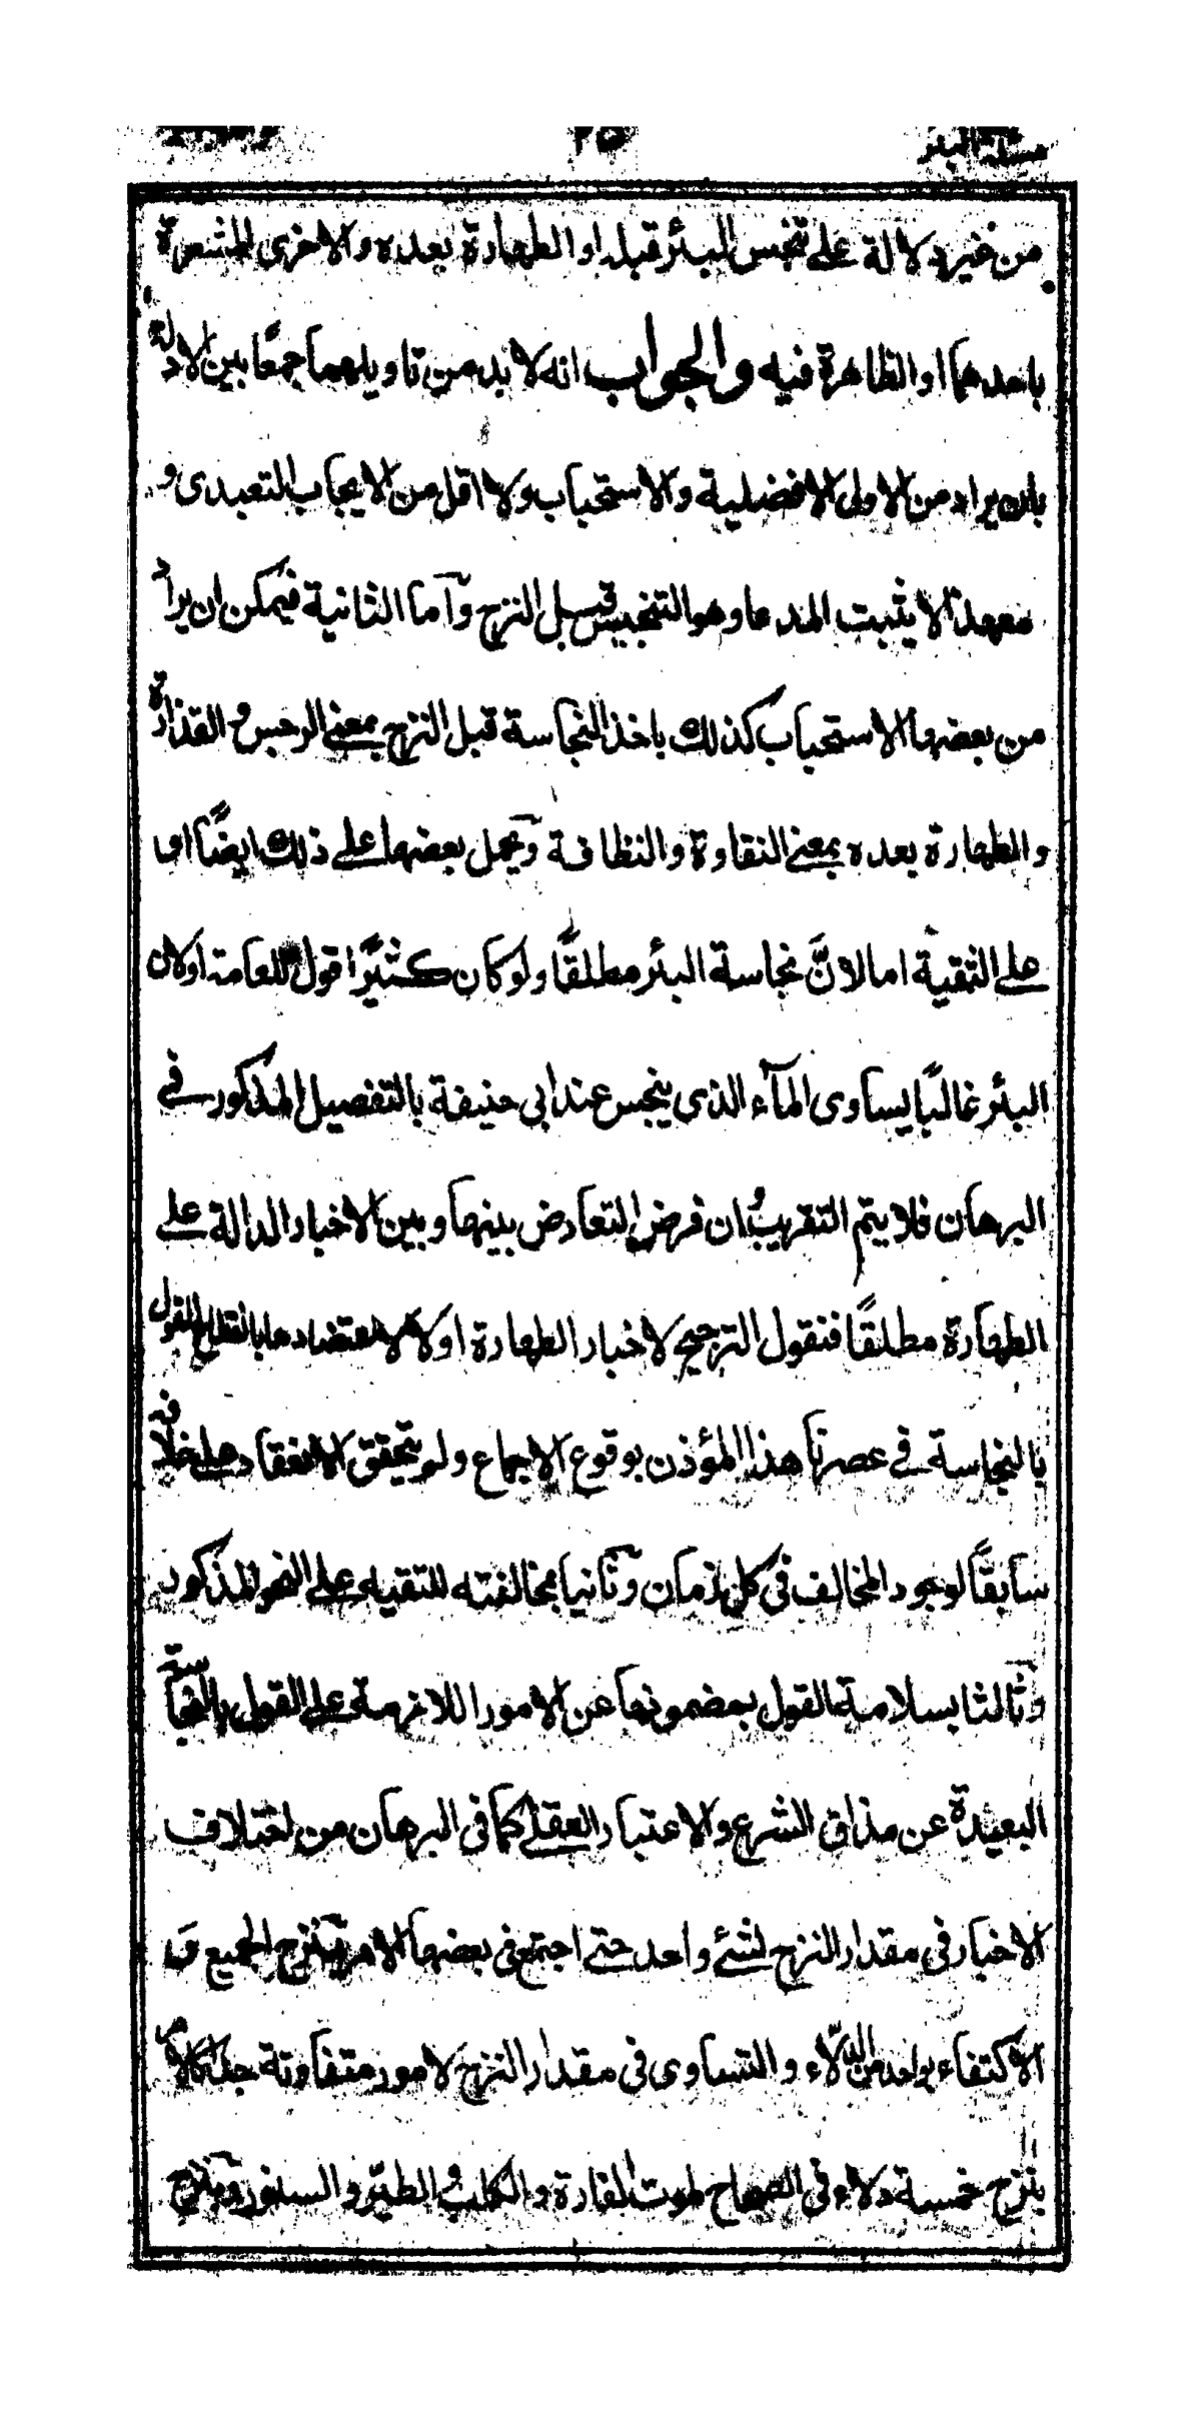 مسئلة البئر ٢٥
من غير دلالة على تنجس البئر قبله او الطهارة بعده والاخرى المشعرة
باحدهما او الظاهرة فيه والجواب انه لا بد من تاويلهما جمعًا بين الادلة
بان يراد من الاولى الافضلية والاستحباب ولا اقل من الايجاب التعبدى و
معهذا لا يثبت المدعا وهو التنجيس قبل النزح وآما الثانية فيمكن ان يراد
من بعضها الاستحباب كذلك باخذ النجاسة قبل النزح بمعنى الرجس و القذارة
والطهارة بعده بمعنى النقاوة والنظافة ويحمل بعضها على ذلك ايضًا او
على التقية اما لانَّ نجاسة البئر مطلقًا ولو كان كثيرًا قول للعامة او لان
البئر غالبًا يساوى المآء الذى ينجس عند ابى حنيفة بالتفصيل المذكور في
البرهان فلا يتم التقريب وان فرض التعارض بينها وبين الاخبار الدالة على
الطهارة مطلقًا فنقول الترجيح لاخبار الطهارة اولا لاعتضادها بانقطاع القول
بالنجاسة في عصرنا هذا المؤذن بوقوع الاجماع ولم يتحقق الانعقاد على خلافه
سابقًا لوجود المخالف في كل زمان وثانيا بمخالفته للتقيه على النحو المذكور
وثالثا بسلامة القول بمضمونها عن الامور اللازمة على القول بالنجاسة
البعيدة عن مذاق الشرع والاعتبار العقلى كما فى البرهان من اختلاف
الاخبار فى مقدار النزح لشئ واحد حتى اجتمع فى بعضها الامر بنزح الجميع و
الاكتفاء بواحد من الدلاء والتساوى فى مقدار النزح لامور متفاوتة جدا كالامر
بنزح خمسة دلاء فى الصحاح لموت الفارة والكلب و الطير والسنور وبنزح